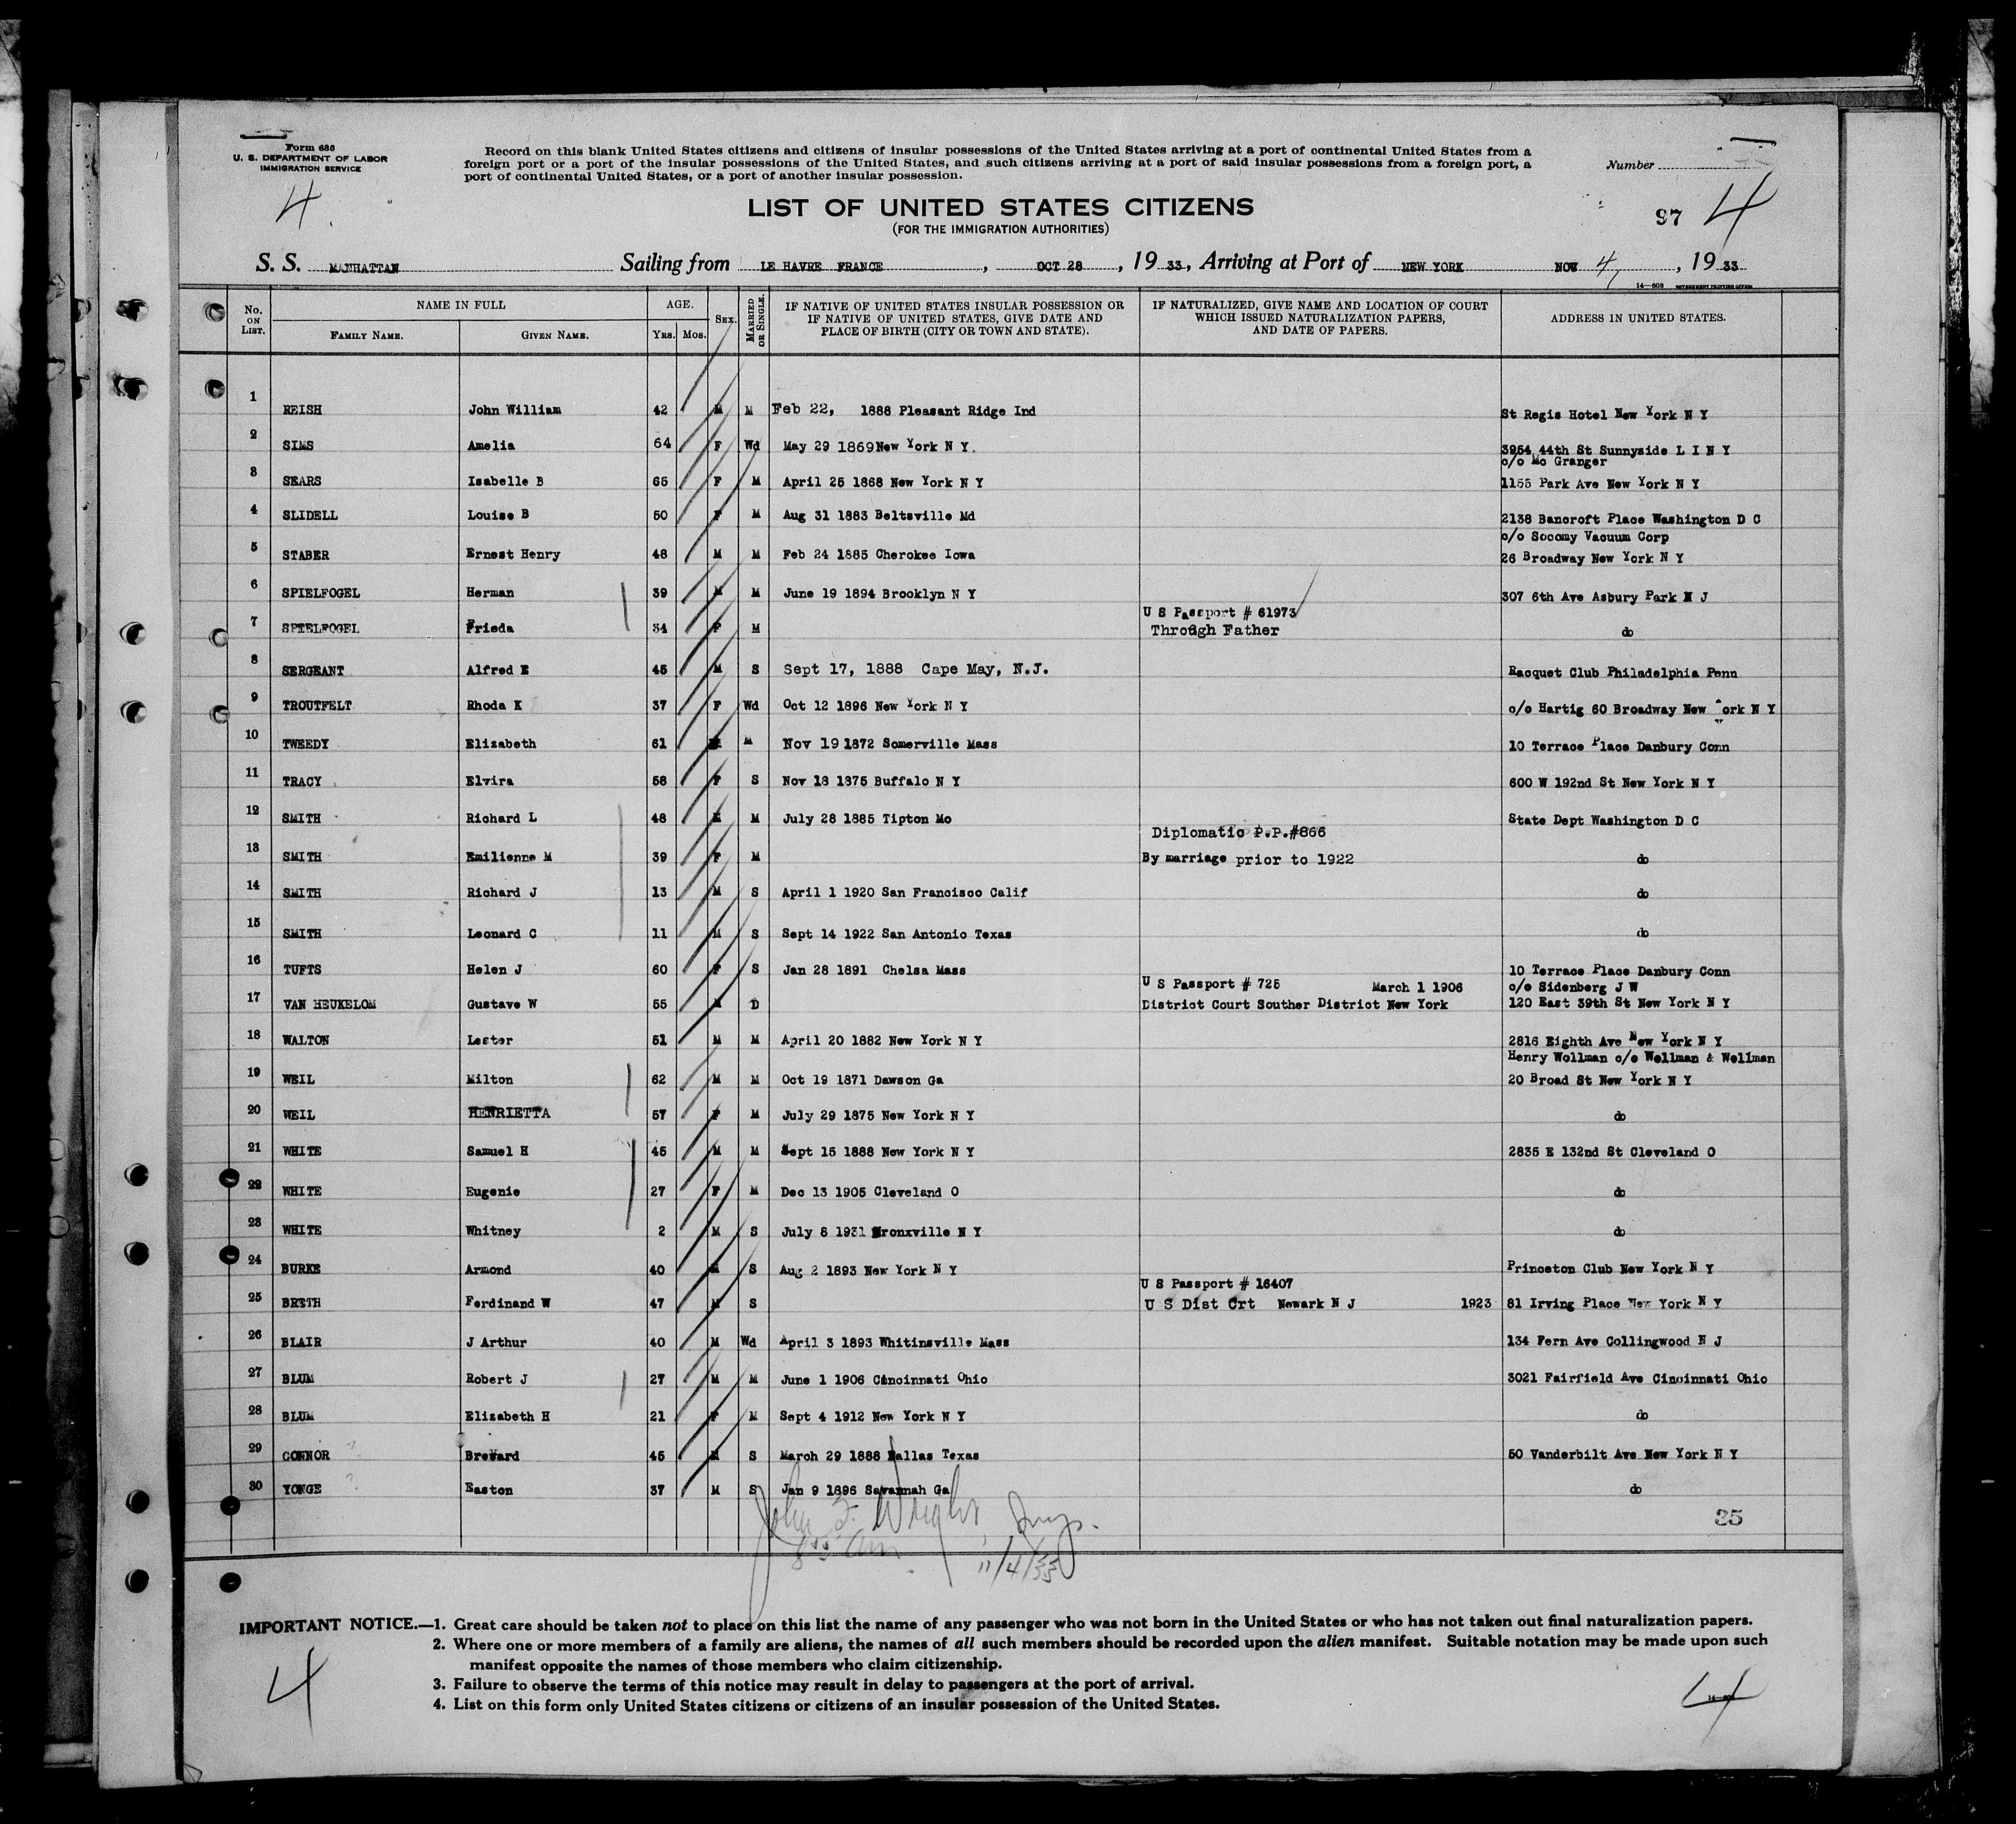 Form 686
U. S. DEPARTMENT OF LABOR
IMMIGRATION SERVICE
Record on this blank United States citizens and citizens of insular possessions of the United States arriving at a port of continental United States from a
foreign port or a port of the insular possessions of the United States, and such citizens arriving at a port of said insular possessions from a foreign port, a
port of continental United States, or a port of another insular possession.
Number
4
LIST OF UNITED STATES CITIZENS
(FOR THE IMMIGRATION AUTHORITIES)
97 4
S. S. MANHATTAN Sailing from LE HAVRE FRANCE, OCT 28, 1933, Arriving at Port of NEW YORK NOV 4, 1933
14—608 GOVERNMENT PRINTING OFFICE
No. ON LIST. NAME IN FULL FAMILY NAME. GIVEN NAME. AGE. YRS. MOS. SEX. MARRIED OR SINGLE. IF NATIVE OF UNITED STATES INSULAR POSSESSION OR IF NATIVE OF UNITED STATES, GIVE DATE AND PLACE OF BIRTH (CITY OR TOWN AND STATE). IF NATURALIZED, GIVE NAME AND LOCATION OF COURT WHICH ISSUED NATURALIZATION PAPERS, AND DATE OF PAPERS. ADDRESS IN UNITED STATES.
1 REISH John William 42 M M Feb 22, 1888 Pleasant Ridge Ind St Regis Hotel New York N Y
2 SIMS Amelia 64 F Wd May 29 1869 New York N Y. 3954 44th St Sunnyside L I N Y
c/o Mc Granger
3 SEARS Isabelle B 65 F M April 25 1868 New York N Y 1155 Park Ave New York N Y
4 SLIDELL Louise B 50 F M Aug 31 1883 Beltsville Md 2138 Bancroft Place Washington D C
c/o Socomy Vacuum Corp
5 STABER Ernest Henry 48 M M Feb 24 1885 Cherokee Iowa 26 Broadway New York N Y
6 SPIELFOGEL Herman 39 M M June 19 1894 Brooklyn N Y 307 6th Ave Asbury Park N J
U S Passport # 61973
7 SPIELFOGEL Frieda 34 F M Through Father do
8 SERGEANT Alfred E 45 M S Sept 17, 1888 Cape May, N.J. Racquet Club Philadelphia Penn
9 TROUTFELT Rhoda K 37 F Wd Oct 12 1896 New York N Y c/o Hartig 60 Broadway New York N Y
10 TWEEDY Elizabeth 61 M Nov 19 1872 Somerville Mass 10 Terrace Place Danbury Conn
11 TRACY Elvira 58 F S Nov 18 1875 Buffalo N Y 600 W 192nd St New York N Y
12 SMITH Richard L 48 M M July 28 1885 Tipton Mo State Dept Washington D C
Diplomatic P.P.#866
13 SMITH Emilienne M 39 F M By marriage prior to 1922 do
14 SMITH Richard J 13 M S April 1 1920 San Francisco Calif do
15 SMITH Leonard C 11 M S Sept 14 1922 San Antonio Texas do
16 TUFTS Helen J 60 F S Jan 28 1891 Chelsa Mass 10 Terrace Place Danbury Conn
U S Passport # 725 March 1 1906 c/o Sidenberg J W
17 VAN HEUKELOM Gustave W 55 M D District Court Souther District New York 120 East 39th St New York N Y
18 WALTON Lester 51 M M April 20 1882 New York N Y 2816 Eighth Ave New York N Y
Henry Wollman c/o Wollman & Wollman
19 WEIL Milton 62 M M Oct 19 1871 Dawson Ga 20 Broad St New York N Y
20 WEIL HENRIETTA 57 F M July 29 1875 New York N Y do
21 WHITE Samuel H 45 M M Sept 15 1888 New York N Y 2835 E 132nd St Cleveland O
22 WHITE Eugenie 27 F M Dec 13 1905 Cleveland O do
23 WHITE Whitney 2 M S July 8 1931 Bronxville N Y do
24 BURKE Armond 40 M S Aug 2 1893 New York N Y Princeton Club New York N Y
U S Passport # 16407
25 BRETH Ferdinand W 47 M S U S Dist Crt Newark N J 1923 81 Irving Place New York N Y
26 BLAIR J Arthur 40 M Wd April 3 1893 Whitinsville Mass 134 Fern Ave Collingwood N J
27 BLUM Robert J 27 M M June 1 1906 Cincinnati Ohio 3021 Fairfield Ave Cincinnati Ohio
28 BLUM Elizabeth H 21 F M Sept 4 1912 New York N Y do
29 CONNOR Brevard 45 M S March 29 1888 Dallas Texas 50 Vanderbilt Ave New York N Y
30 YONGE Easton 37 M S Jan 9 1896 Savannah Ga do
John F. Wright, Insp.
8 55 am 11/4/33
35
IMPORTANT NOTICE.—1. Great care should be taken not to place on this list the name of any passenger who was not born in the United States or who has not taken out final naturalization papers.
2. Where one or more members of a family are aliens, the names of all such members should be recorded upon the alien manifest. Suitable notation may be made upon such
manifest opposite the names of those members who claim citizenship.
3. Failure to observe the terms of this notice may result in delay to passengers at the port of arrival.
4. List on this form only United States citizens or citizens of an insular possession of the United States.
4 4